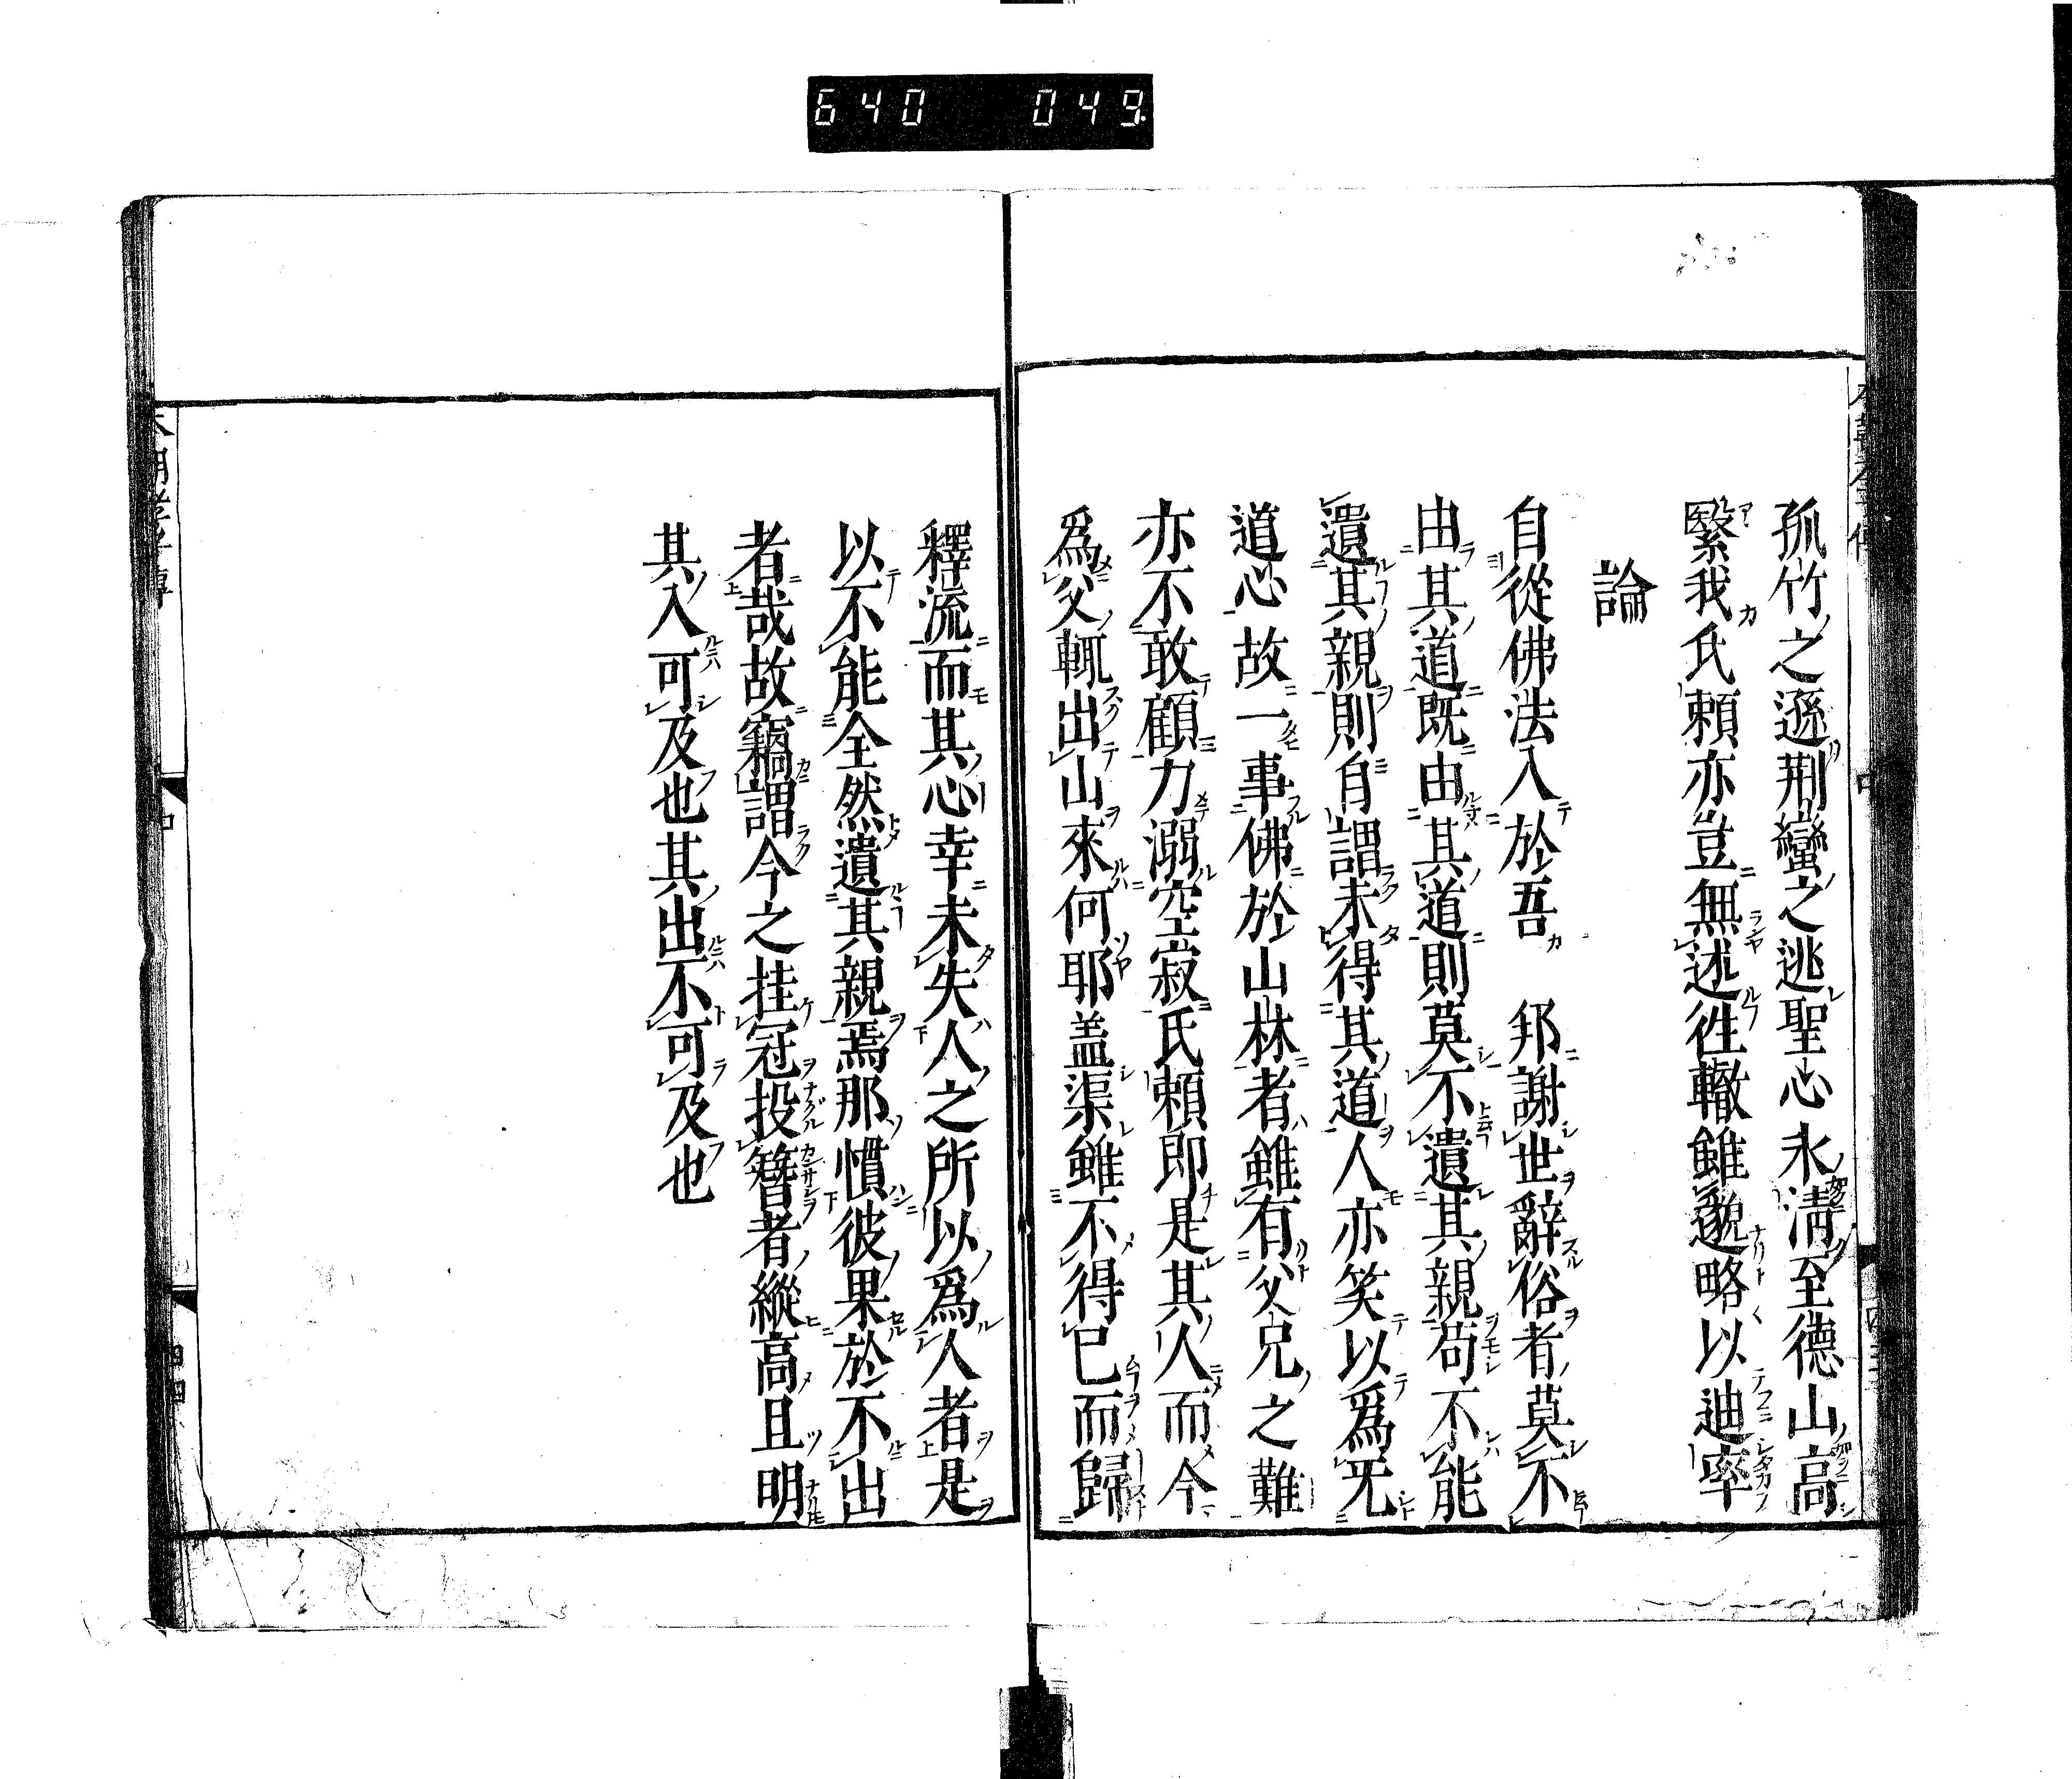 640 049
孤竹之遜荆蠻之逃聖心水淸至德山高
繄我氏賴亦豈無述徃轍雖邈略以迪率
論
自從佛法入於吾 邦謝世辭俗者莫不
由其道既由其道則莫不遺其親苟不能
遺其親則自謂未得其道人亦笑以爲无
道心故一事佛於山林者雖有父兄之難
亦不敢顧力溺空寂氏賴即是其人而今
爲父輒出山來何耶盖渠雖不得已而歸
釋流而其心幸未失人之所以爲人者是
以不能全然遺其親焉那慣彼果於不出
者哉故竊謂今之挂冠投簪者縱高且明
其入可及也其出不可及也
本朝孝子傳 中 四四